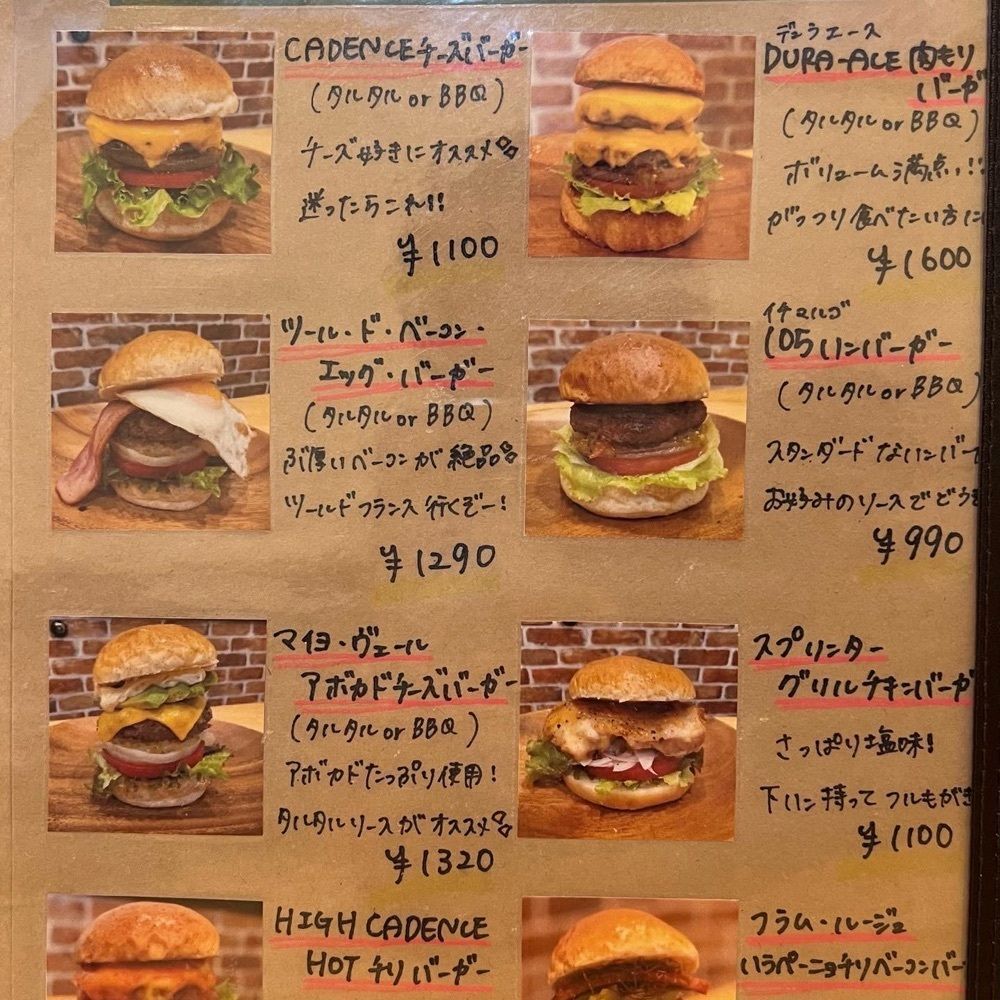 CADENCEチーズバーガー
(タルタル or BBQ)
チーズ好きにオススメ
迷ったらこれ!!
¥1100
デュラエース
DURA-ACE 肉もり
バーガ
(タルタル or BBQ)
ボリューム満点!!
がっつり食べたい方に
¥1600
ツール・ド・ベーコン・
エッグ・バーガー
(タルタル or BBQ)
ぶ厚いベーコンが絶品
ツールドフランス行くぞー!
¥1290
イチマルゴ
105ハンバーガー
(タルタル or BBQ)
スタンダードなハンバー
お好みのソースでどうぞ
¥990
マイヨ・ヴェール
アボカドチーズバーガー
(タルタル or BBQ)
アボカドたっぷり使用!
タルタルソースがオススメ
¥1320
スプリンター
グリルチキンバーガ
さっぱり塩味!
下ハン持ってフルもがき
¥1100
HIGH CADENCE
HOT チリバーガー
フラム・ルージュ
ハラペーニョチリベーコンバー